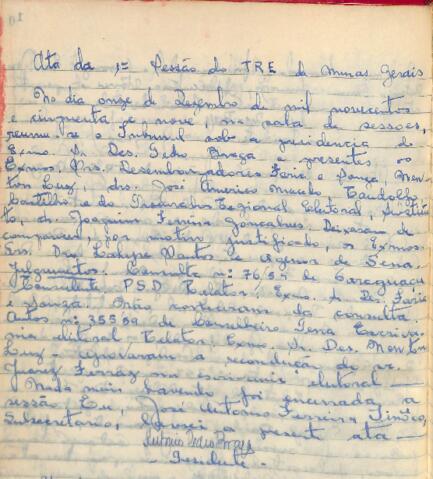 Ata da 1ª Sessão do TRE de Minas Gerais
No dia onze de Dezembro de mil novecentos
e cinquenta e nove, na sala de sessões,
reuniu-se o Tribunal sob a presidencia do
Exmo. Sr. Des. Pedro Braga e presentes os
Exmos. Srs. Desembargadores Faria e Souza, New-
ton Luz, drs. José Americo Macedo,
Castilho e do Procurador Regional Eleitoral, substitu-
to, dr. Joaquim Ferreira Gonçalves. Deixaram de
comparecer, por motivo justificado, os Exmos.
Srs. Drs. Santos e Agenor de Sena.
Julgamentos. Consulta nº 76/59 de
Consulente P.S.D. Relator: Exmo. Sr. Des. Faria
e Souza. Não conheceram da consulta.
Autos nº 355/59 de Conselheiro Pena Escriva-
nia eleitoral, Relator, Exmo. Sr. Des. Newton
Luz - aprovaram a recondução do sr.
Juarez Ferraz na escrivania eleitoral —
Nada mais havendo foi encerrada a
sessão. Eu, José Antonio Ferreira
Subsecretario, lavrei a presente ata —
Antônio Pedro Braga
- Presidente -